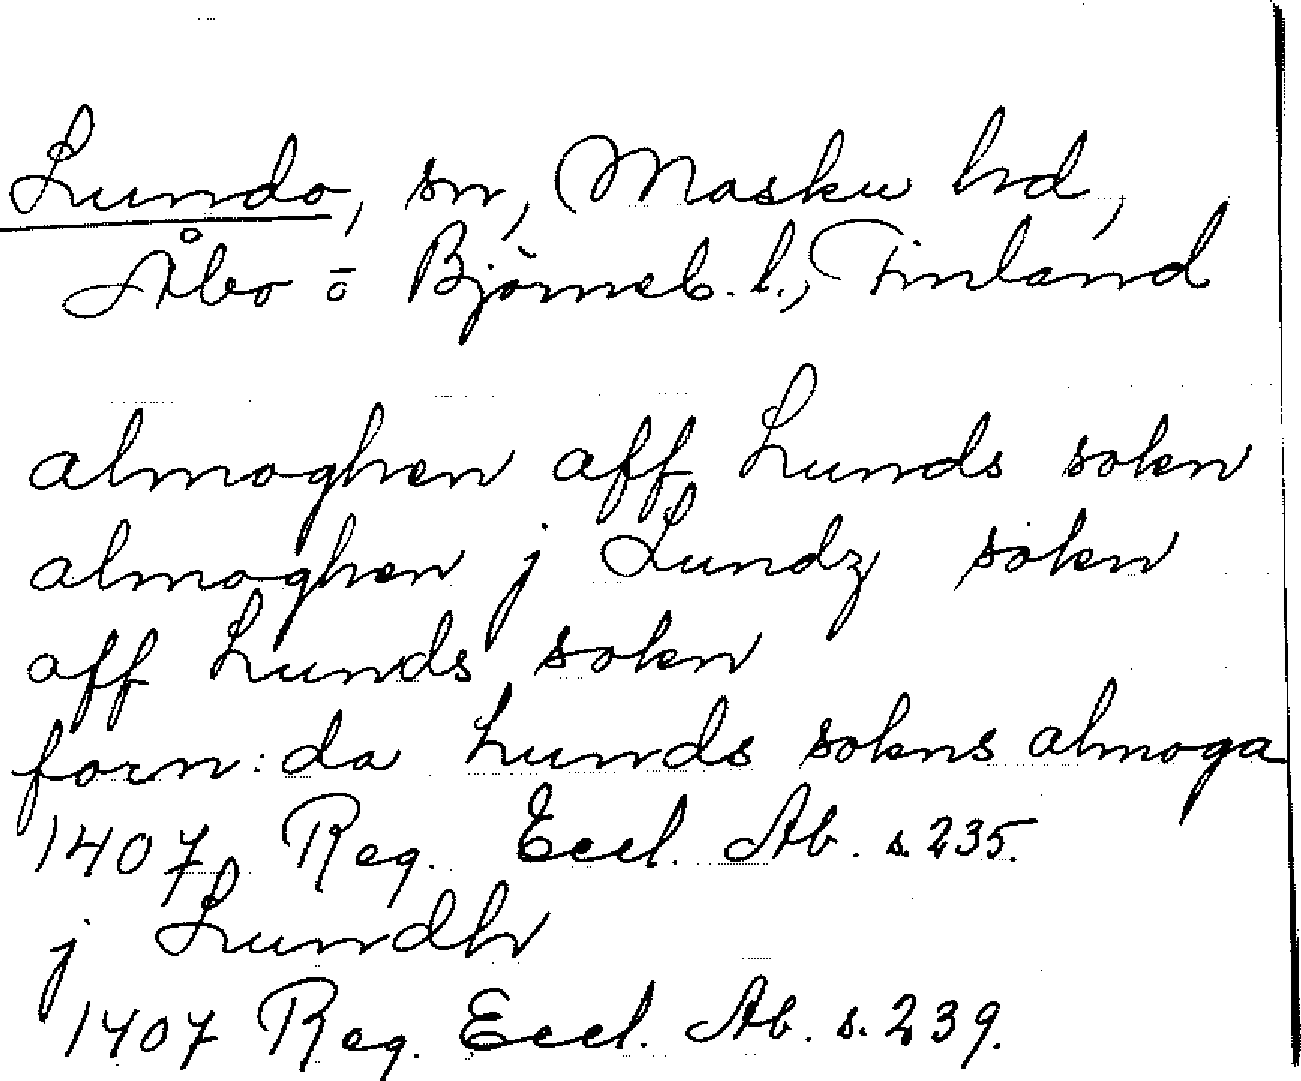 Lundo, sn, Masku hd,
Åbo o Björneb. l., Finland
almoghen aff Lunds sokn
almoghen j Lundz sokn
aff Lunds sokn
forn:da Lunds sokns almoga
1407 Reg. Eccl. Ab. s. 235.
j Lundh
1407 Reg. Eccl. Ab. s. 239.